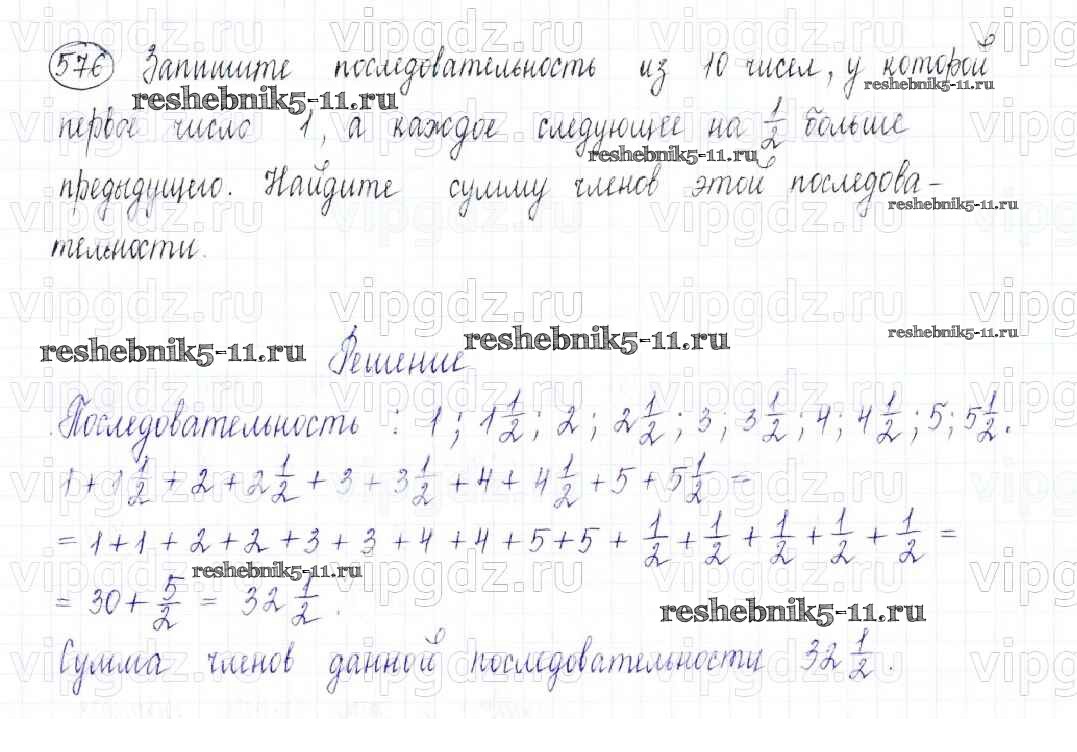 576 Запишите последовательность из 10 чисел, у которой
первое число 1, а каждое следующее на 1/2 больше
предыдущего. Найдите сумму членов этой последова-
тельности.
Решение
Последовательность : 1; 1 1/2; 2; 2 1/2; 3; 3 1/2; 4; 4 1/2; 5; 5 1/2.
1 + 1 1/2 + 2 + 2 1/2 + 3 + 3 1/2 + 4 + 4 1/2 + 5 + 5 1/2 =
= 1 + 1 + 2 + 2 + 3 + 3 + 4 + 4 + 5 + 5 + 1/2 + 1/2 + 1/2 + 1/2 + 1/2 =
= 30 + 5/2 = 32 1/2.
Сумма членов данной последовательности 32 1/2.